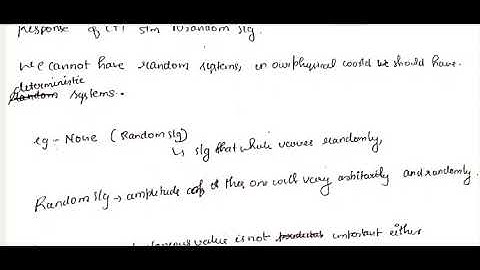 Response of LTI s/m to random sig.
We cannot have random systems, in our physical world we should have
deterministic
Random systems.
eg - None (Random sig)
↳ sig that which varies randomly,
Random sig → amplitude of this one will vary arbitrarily and randomly.
value is not important either